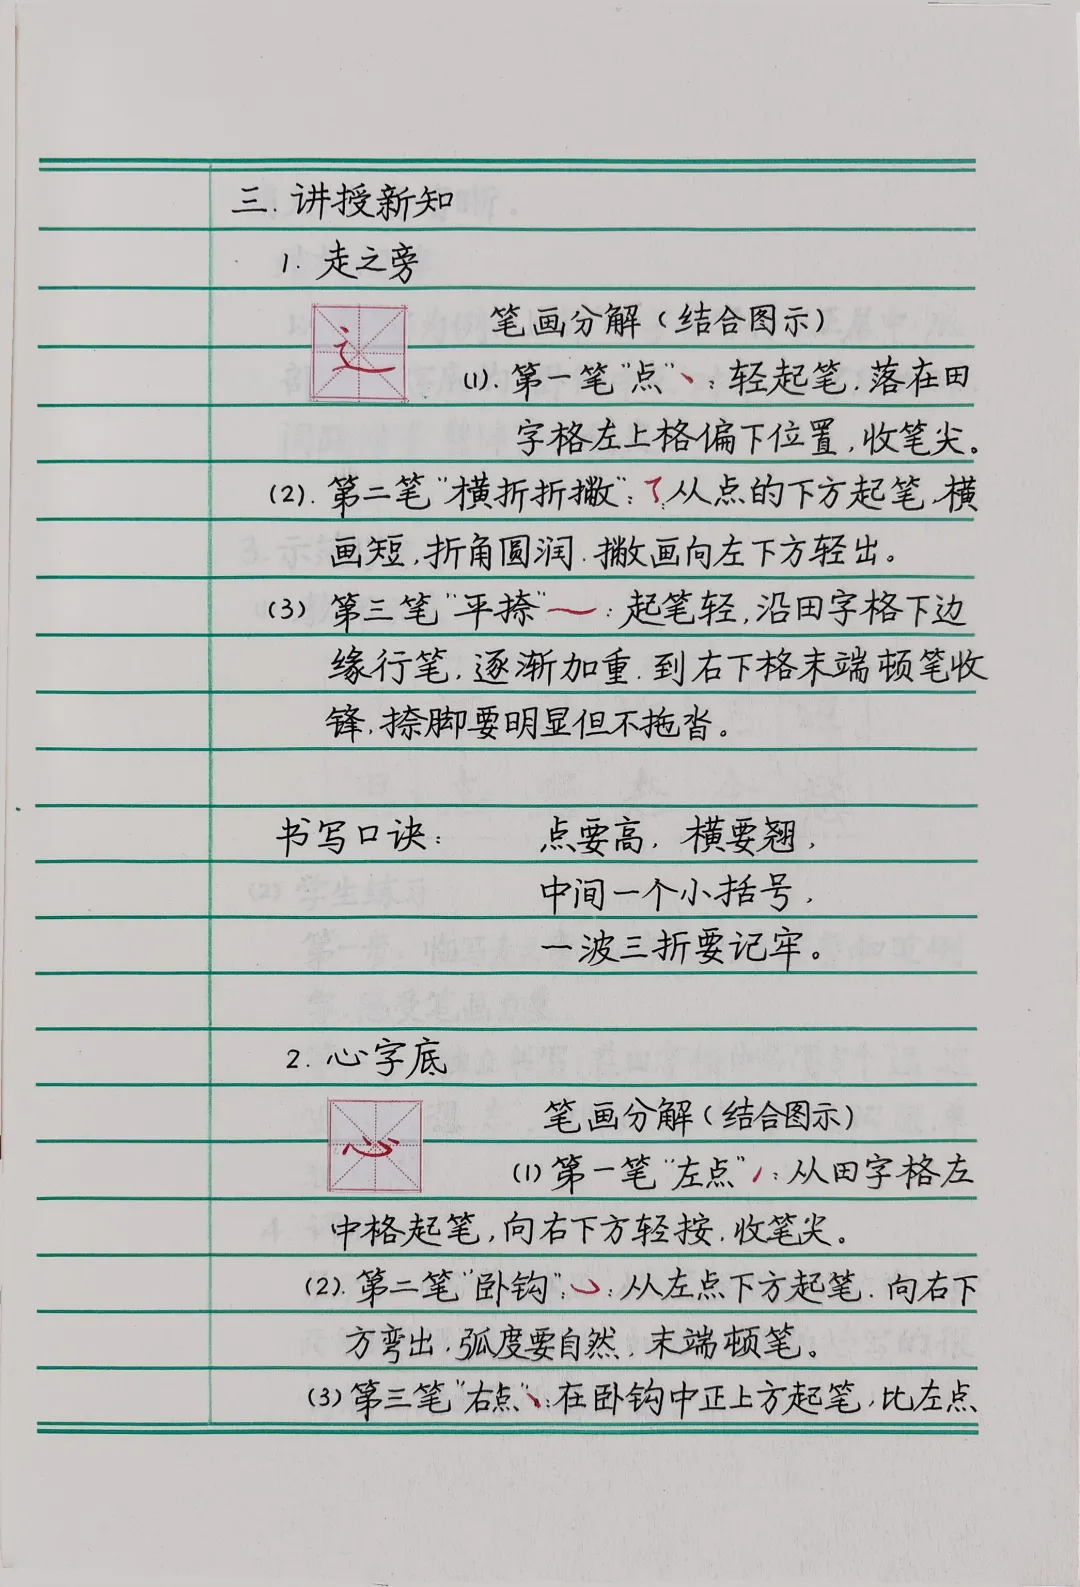 三. 讲授新知
1. 走之旁
辶
笔画分解（结合图示）
(1). 第一笔“点”丶：轻起笔.落在田
字格左上格偏下位置,收笔尖。
(2). 第二笔“横折折撇”：从点的下方起笔.横
画短,折角圆润.撇画向左下方轻出。
(3) 第三笔“平捺”：起笔轻,沿田字格下边
缘行笔.逐渐加重.到右下格末端顿笔收
锋.捺脚要明显但不拖沓。
书写口诀：点要高，横要翘，
中间一个小括号，
一波三折要记牢。
2. 心字底
心
笔画分解（结合图示）
(1) 第一笔“左点”：从田字格左
中格起笔,向右下方轻按.收笔尖。
(2). 第二笔“卧钩”：从左点下方起笔.向右下
方弯出.弧度要自然.末端顿笔。
(3) 第三笔“右点”丶：在卧钩中正上方起笔,比左点